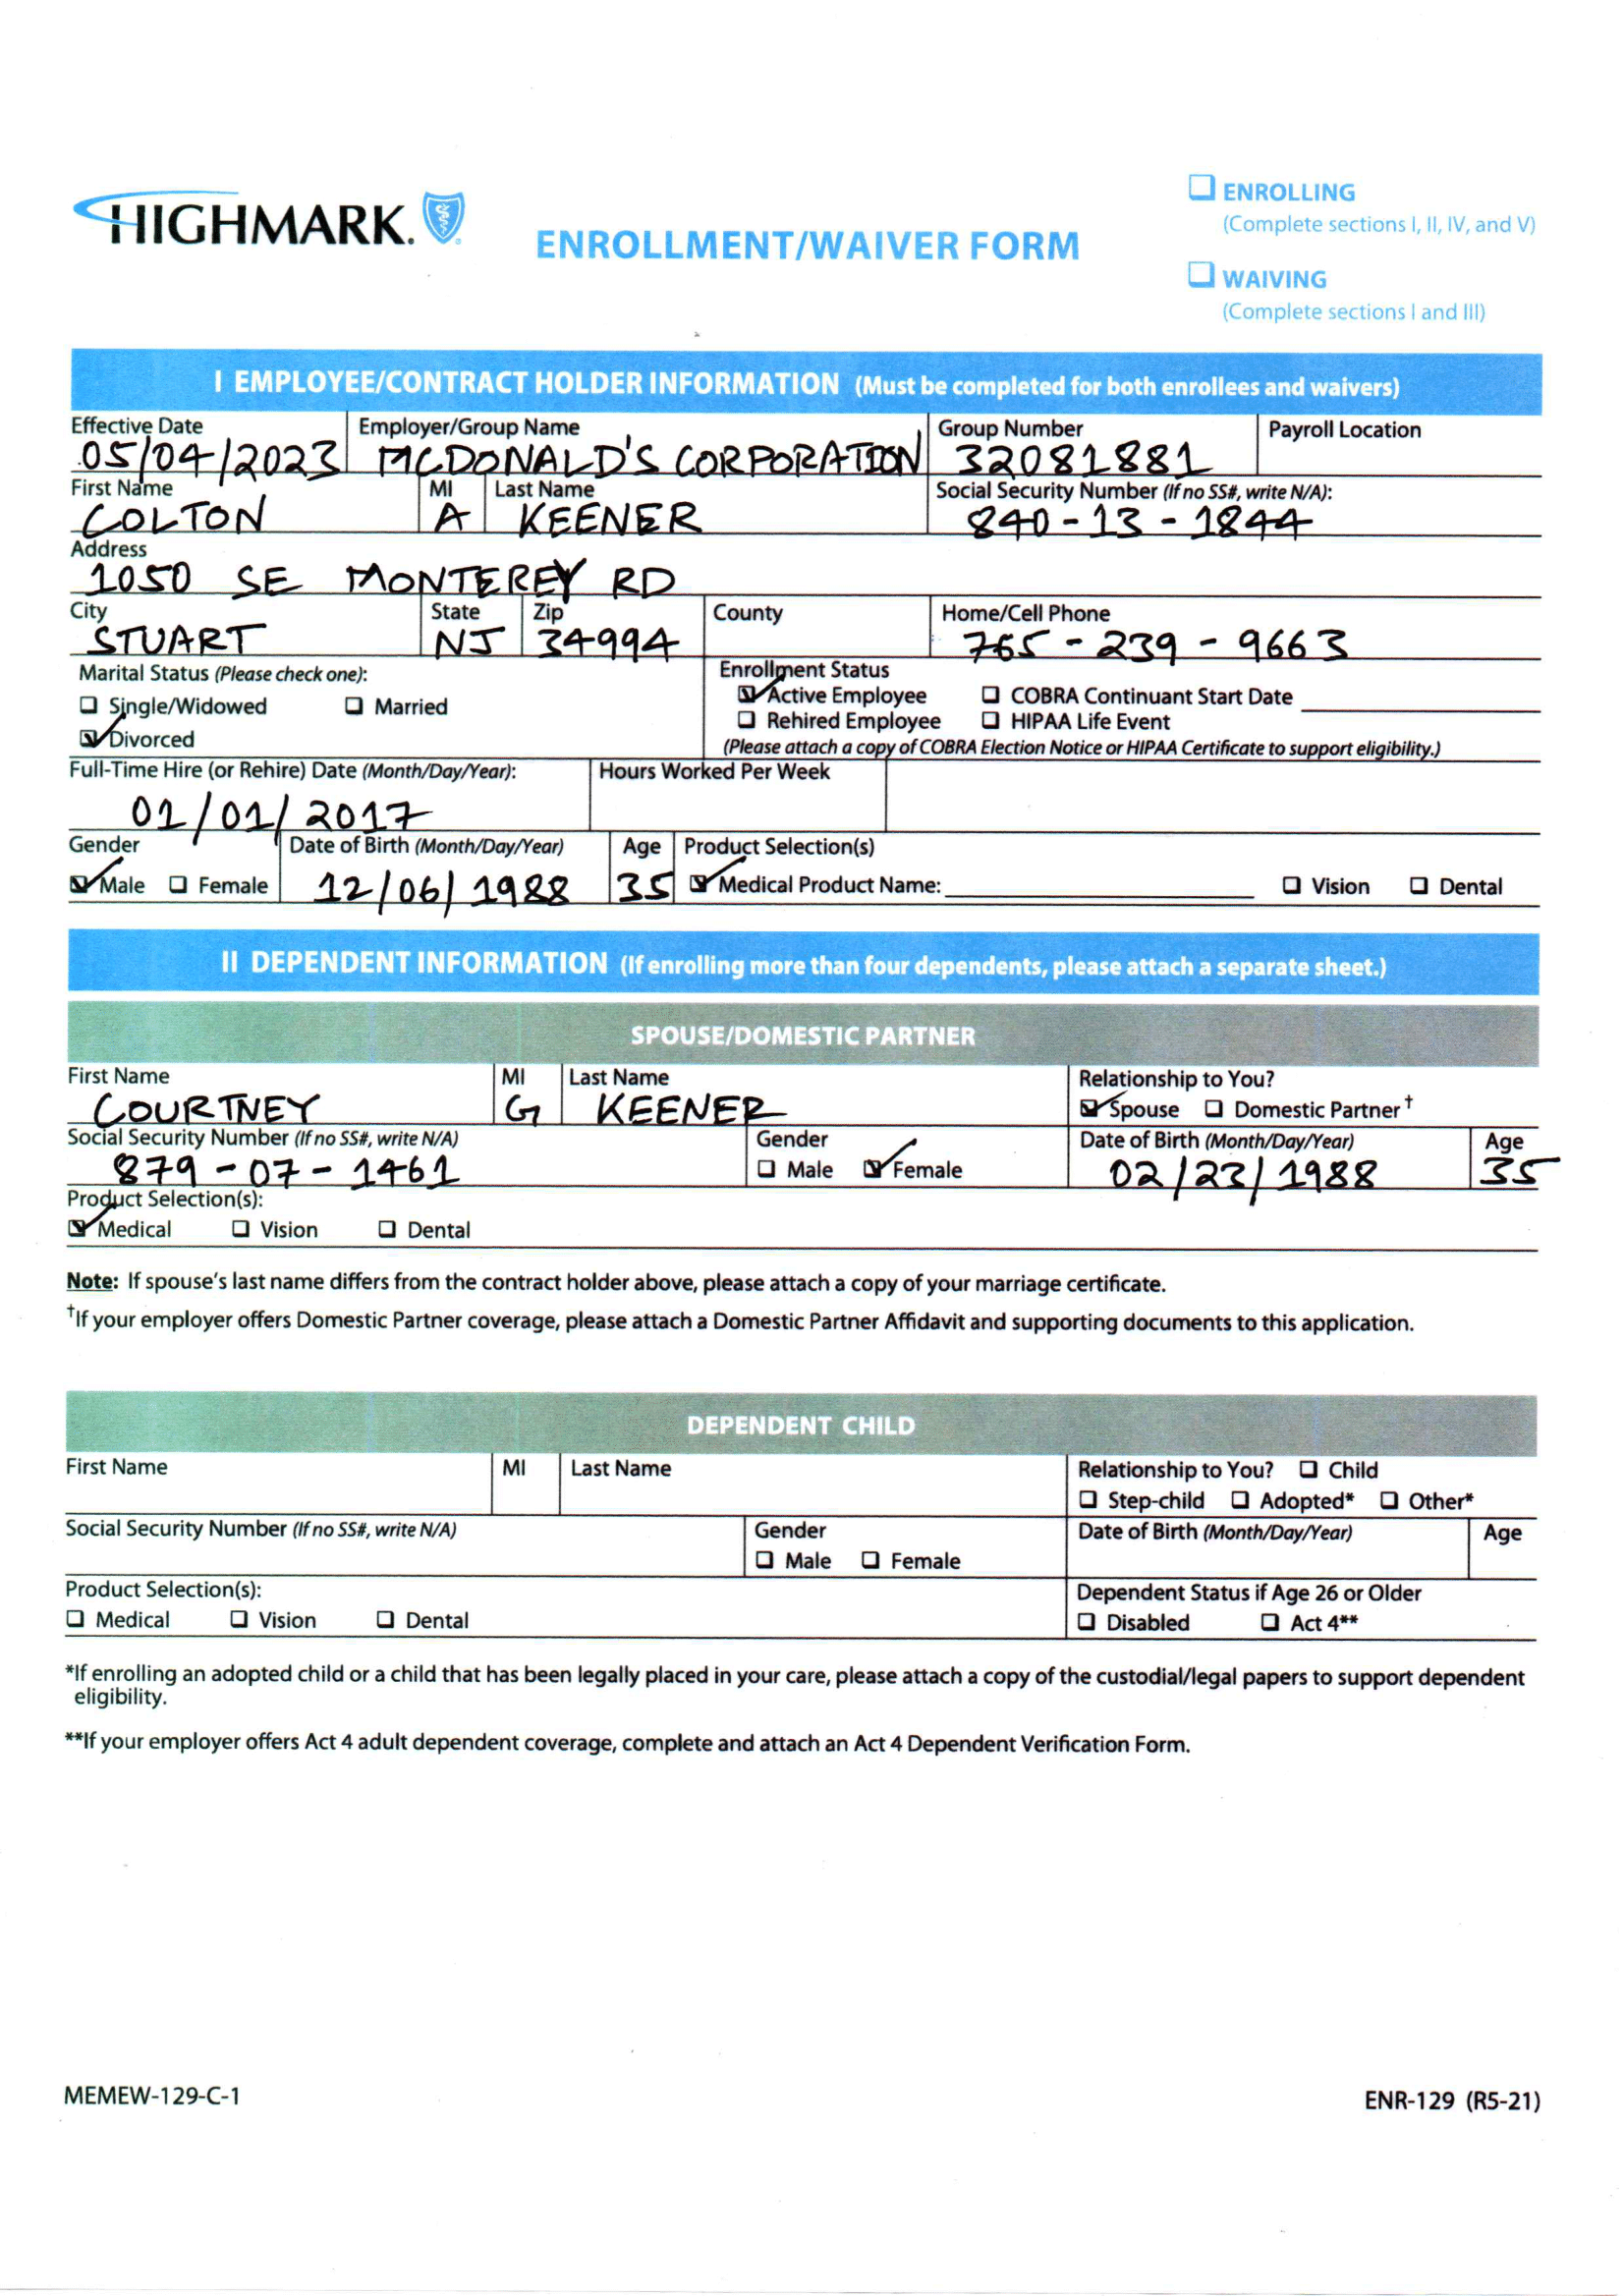 HIGHMARK.
ENROLLMENT/WAIVER FORM
☐ ENROLLING
(Complete sections I, II, IV, and V)
☐ WAIVING
(Complete sections I and III)
I EMPLOYEE/CONTRACT HOLDER INFORMATION (Must be completed for both enrollees and waivers)
Effective Date Employer/Group Name Group Number Payroll Location
05/04/2023 MCDONALD'S CORPORATION 32081881
First Name MI Last Name Social Security Number (If no SS#, write N/A):
COLTON A KEENER 840-13-1844
Address
1050 SE MONTEREY RD
City State Zip County Home/Cell Phone
STUART NJ 34994 765-239-9663
Marital Status (Please check one): Enrollment Status
☑ Active Employee ☐ COBRA Continuant Start Date
☐ Single/Widowed ☐ Married
☐ Rehired Employee ☐ HIPAA Life Event
☑ Divorced
(Please attach a copy of COBRA Election Notice or HIPAA Certificate to support eligibility.)
Full-Time Hire (or Rehire) Date (Month/Day/Year): Hours Worked Per Week
01/01/2017
Gender Date of Birth (Month/Day/Year) Age Product Selection(s)
☑ Male ☐ Female 12/06/1988 35 ☑ Medical Product Name: ☐ Vision ☐ Dental
II DEPENDENT INFORMATION (If enrolling more than four dependents, please attach a separate sheet.)
SPOUSE/DOMESTIC PARTNER
First Name MI Last Name Relationship to You?
COURTNEY G KEENER ☑ Spouse ☐ Domestic Partner†
Social Security Number (If no SS#, write N/A) Gender Date of Birth (Month/Day/Year) Age
879-07-1461 ☐ Male ☑ Female 02/23/1988 35
Product Selection(s):
☑ Medical ☐ Vision ☐ Dental
Note: If spouse's last name differs from the contract holder above, please attach a copy of your marriage certificate.
†If your employer offers Domestic Partner coverage, please attach a Domestic Partner Affidavit and supporting documents to this application.
DEPENDENT CHILD
First Name MI Last Name Relationship to You? ☐ Child
☐ Step-child ☐ Adopted* ☐ Other*
Social Security Number (If no SS#, write N/A) Gender Date of Birth (Month/Day/Year) Age
☐ Male ☐ Female
Product Selection(s): Dependent Status if Age 26 or Older
☐ Medical ☐ Vision ☐ Dental ☐ Disabled ☐ Act 4**
*If enrolling an adopted child or a child that has been legally placed in your care, please attach a copy of the custodial/legal papers to support dependent
eligibility.
**If your employer offers Act 4 adult dependent coverage, complete and attach an Act 4 Dependent Verification Form.
MEMEW-129-C-1 ENR-129 (R5-21)